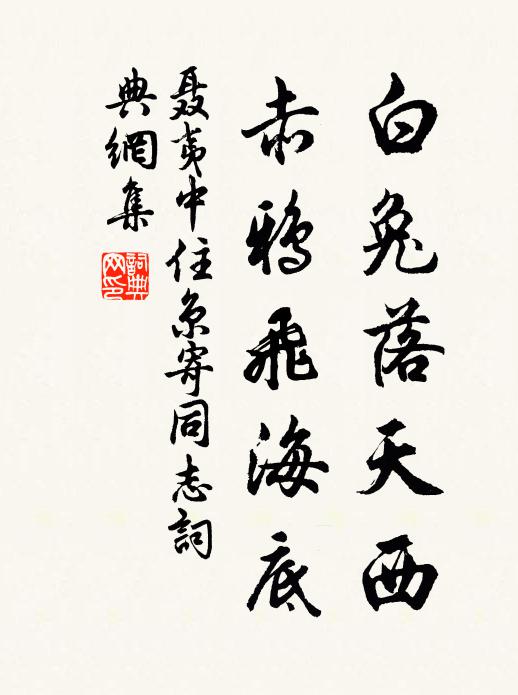 白兔落天西
赤鸦飛海底
聂夷中住京寄同志詞
典網集
詞典網印